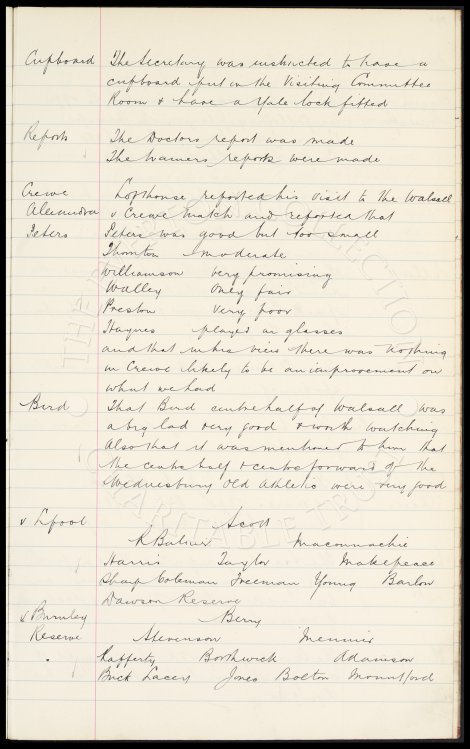 Cupboard The Secretary was instructed to have a
cupboard put in the Visiting Committee
Room & have a Yale lock fitted
Reports The Doctors report was made
The trainers reports were made
Crewe Lofthouse reported his visit to the Walsall
Alexandra v Crewe match and reported that
Peters Peters was good but too small
Thornton moderate
Williamson very promising
Walley only fair
Preston very poor
Haynes played in glasses
and that in his view there was nothing
in Crewe likely to be an improvement on
what we had
Bird That Bird centre half of Walsall was
a big lad very good & worth watching
Also that it was mentioned to him that
the centre half & centre forward of the
Wednesbury Old Athletic were very good
v Lpool Scott
R Balmer Maconnachie
Harris Taylor Makepeace
Sharp Coleman Freeman Young Barlow
Dawson Reserve
v Burnley Berry
Reserve Stevenson Meunier
Rafferty Borthwick Adamson
Buck Lacey Jones Bolton Mountford